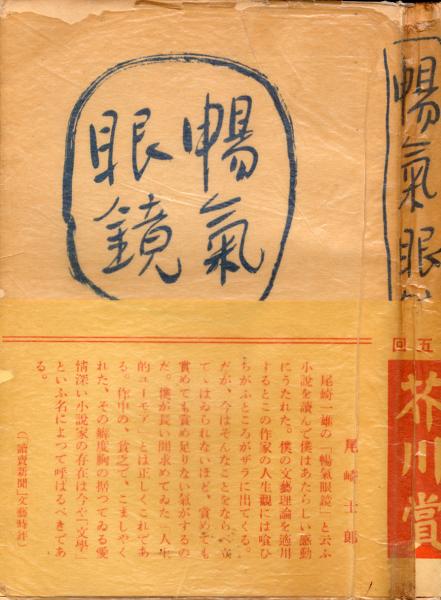 暢氣
眼鏡
暢氣眼
五回
芥川賞
尾崎士郎
尾崎一雄の「暢氣眼鏡」と云ふ
小說を讀んで僕はあたらしい感動
にうたれた。僕の文藝理論を適用
するとこの作家の人生觀には喰ひ
ちがふところがザラに出てくる。
だが、今はそんなことをならべ立
てゝはゐられないほど、賞めても
賞めても賞め足りない氣がするの
だ。僕が長い間求めてゐた「人生
的ユーモア」とは正しくこれであ
る。作中の、貧乏で、こましやく
れた、その癖度胸の据つてゐる愛
情深い小說家の存在は今や「文學」
といふ名によつて呼ばるべきであ
る。
（「讀賣新聞」文藝時評）